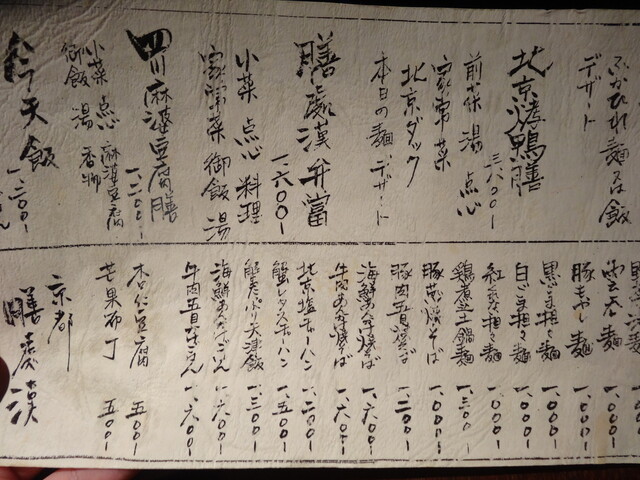 ふかひれ麺又は飯
デザート
北京烤鴨膳
三八〇〇-
前菜 湯 点心
家常菜
北京ダック
本日の麺 デザート
膳處漢弁當
一、六〇〇-
小菜 点心 料理
家常菜 御飯 湯
四川麻婆豆腐膳
一、二〇〇-
小菜 点心 麻婆豆腐
御飯 湯 香物
今天飯
一、二〇〇-
雲呑麺 一、〇〇〇-
豚もおし麺 一、〇〇〇-
黒ごま担々麺 一、〇〇〇-
白ごま担々麺 一、〇〇〇-
紅ごま担々麺 一、〇〇〇-
鶏煮土鍋麺 一、三〇〇-
豚菜焼そば 一、〇〇〇-
豚肉五目焼そば 一、二〇〇-
海鮮あんかけ焼そば 一、六〇〇-
牛肉あんかけ焼そば 一、六〇〇-
北京塩チャーハン 一、二〇〇-
蟹レタスチャーハン 一、五〇〇-
蟹たっぷり天津飯 一、三〇〇-
海鮮あんかけごはん 一、六〇〇-
牛肉五目あんかけごはん 一、六〇〇-
杏仁豆腐 五〇〇-
芒果布丁 五〇〇-
京都
膳處漢